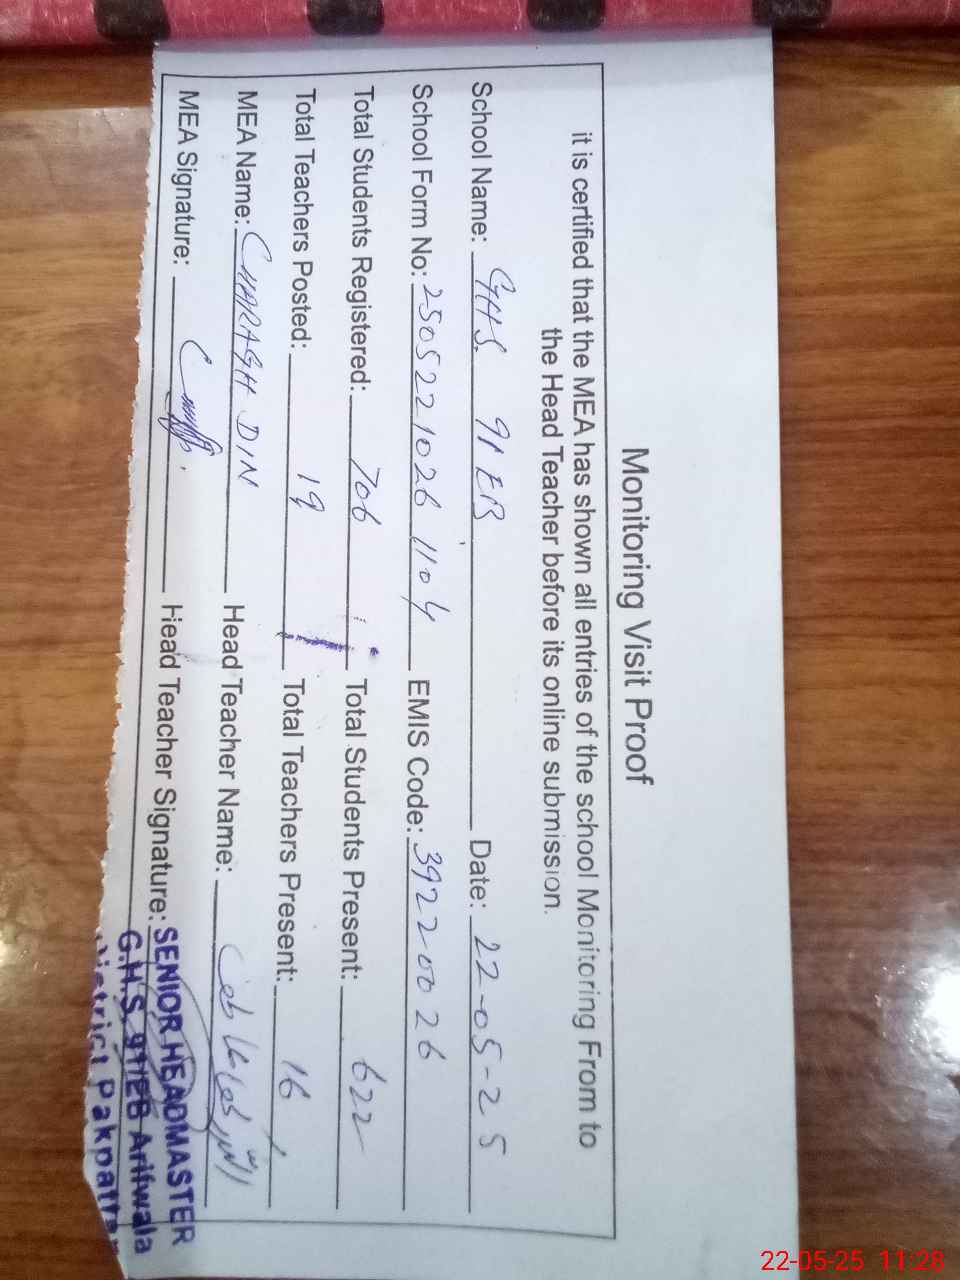 Monitoring Visit Proof
it is certified that the MEA has shown all entries of the school Monitoring From to
the Head Teacher before its online submission.
School Name: GHS 91 EB Date: 22-05-25
School Form No: 25052210261104 EMIS Code: 39220026
Total Students Registered: 706 Total Students Present: 622
Total Teachers Posted: 19 Total Teachers Present: 16
MEA Name: CHARAGH DIN Head Teacher Name:
MEA Signature: Head Teacher Signature:
SENIOR HEADMASTER
G.H.S 91/EB Arifwala
District Pakpattan
22-05-25 11:28